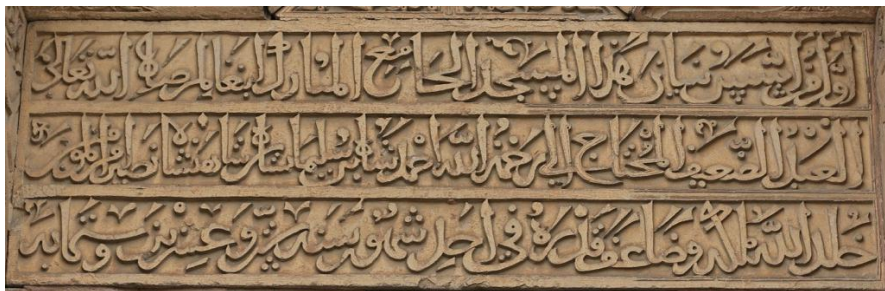 بنيان هذا المسجد الجامع المبارك ابتغا لمرضاة الله تعالى
العبد الضعيف المحتاج الى رحمة الله احمد شاه بن سليمان شاه بن شاهنشاه
خلد الله ملكه وضاعف قدره في احد شهور سنة ست وعشرين وستمايه